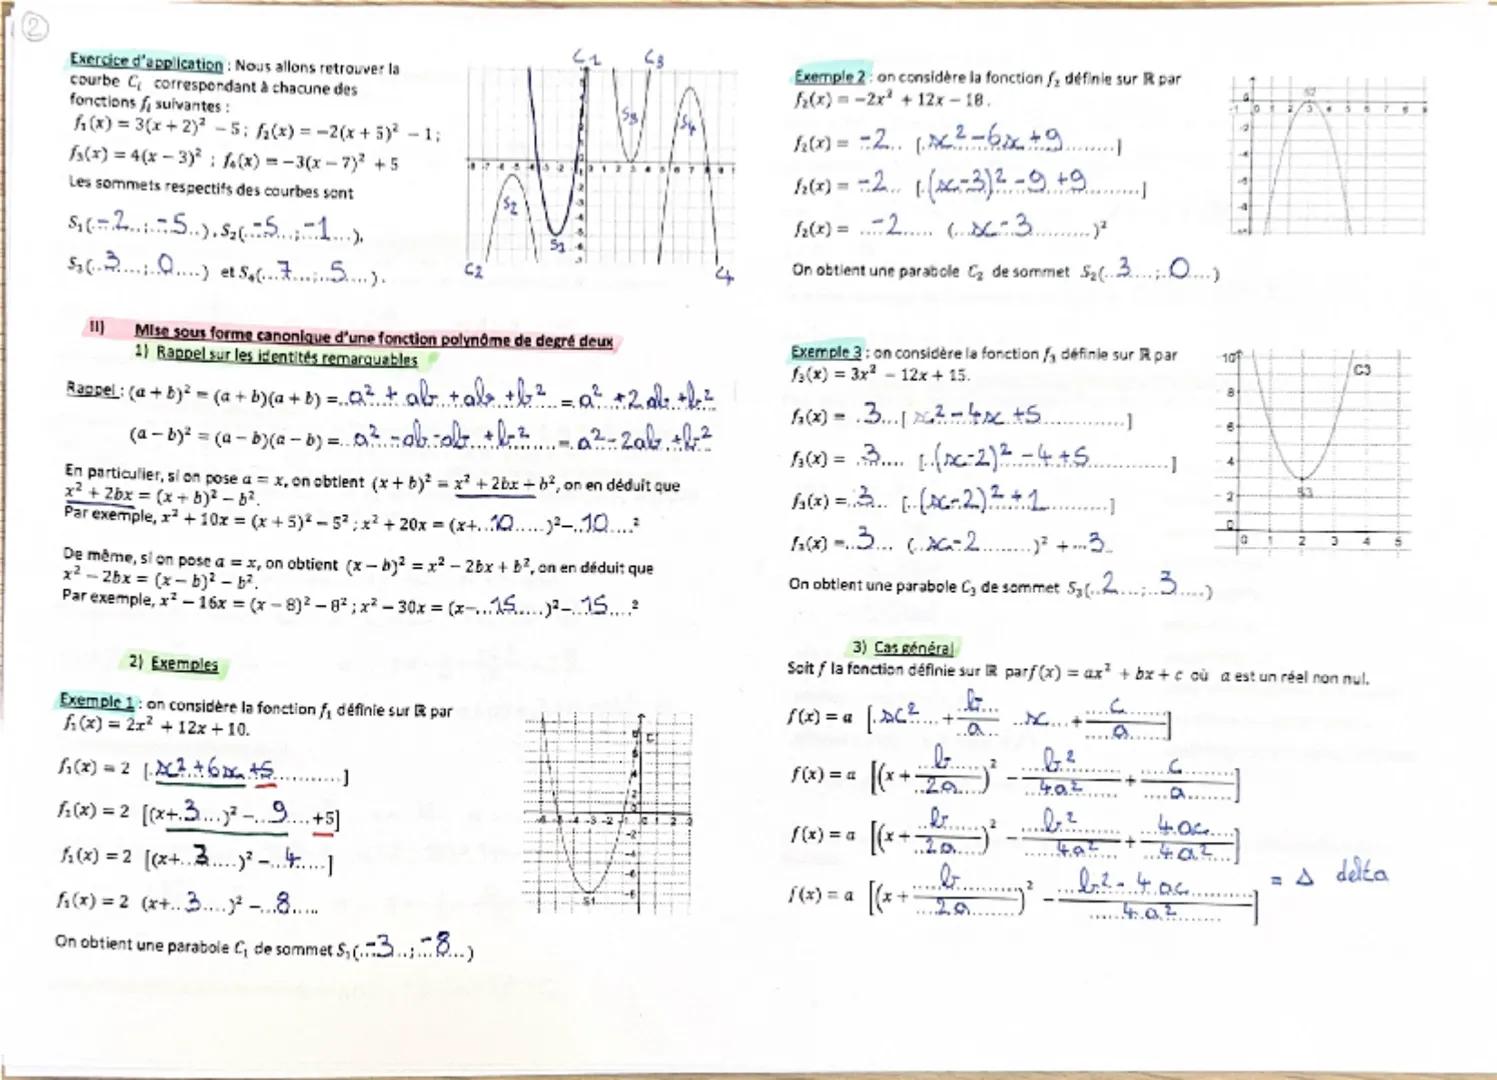 2
Exercice d'application : Nous allons retrouver la
courbe Cᵢ correspondant à chacune des
fonctions fᵢ suivantes :
f₁(x) = 3(x + 2)² − 5 ; f₂(x) = −2(x + 5)² − 1 ;
f₃(x) = 4(x − 3)² ; f₄(x) = −3(x − 7)² + 5
Les sommets respectifs des courbes sont
S₁(−2 ; −5), S₂(−5 ; −1),
S₃(3 ; 0) et S₄(7 ; 5).
C1 C3
S3 S4
S2
S1
C2 C4
II) Mise sous forme canonique d'une fonction polynôme de degré deux
1) Rappel sur les identités remarquables
Rappel : (a + b)² = (a + b)(a + b) = a² + ab + ab + b² = a² + 2ab + b²
(a − b)² = (a − b)(a − b) = a² − ab − ab + b² = a² − 2ab + b²
En particulier, si on pose a = x, on obtient (x + b)² = x² + 2bx + b², on en déduit que
x² + 2bx = (x + b)² − b².
Par exemple, x² + 10x = (x + 5)² − 5² ; x² + 20x = (x + 10)² − 10²
De même, si on pose a = x, on obtient (x − b)² = x² − 2bx + b², on en déduit que
x² − 2bx = (x − b)² − b².
Par exemple, x² − 16x = (x − 8)² − 8² ; x² − 30x = (x − 15)² − 15²
2) Exemples
Exemple 1 : on considère la fonction f₁ définie sur ℝ par
f₁(x) = 2x² + 12x + 10.
f₁(x) = 2 [x² + 6x + 5]
f₁(x) = 2 [(x + 3)² − 9 + 5]
f₁(x) = 2 [(x + 3)² − 4]
f₁(x) = 2 (x + 3)² − 8
On obtient une parabole C₁ de sommet S₁(−3 ; −8)
S1
Exemple 2 : on considère la fonction f₂ définie sur ℝ par
f₂(x) = −2x² + 12x − 18.
f₂(x) = −2 [x² − 6x + 9]
f₂(x) = −2 [(x − 3)² − 9 + 9]
f₂(x) = −2 (x − 3)²
On obtient une parabole C₂ de sommet S₂(3 ; 0)
S2
Exemple 3 : on considère la fonction f₃ définie sur ℝ par
f₃(x) = 3x² − 12x + 15.
f₃(x) = 3 [x² − 4x + 5]
f₃(x) = 3 [(x − 2)² − 4 + 5]
f₃(x) = 3 [(x − 2)² + 1]
f₃(x) = 3 (x − 2)² + 3
On obtient une parabole C₃ de sommet S₃(2 ; 3)
C3
10
8
6
4
2
0
S3
0 1 2 3 4 5
3) Cas général
Soit f la fonction définie sur ℝ par f(x) = ax² + bx + c où a est un réel non nul.
f(x) = a [x² + b/a x + c/a]
f(x) = a [(x + b/2a)² − b²/4a² + c/a]
f(x) = a [(x + b/2a)² − b²/4a² + 4ac/4a²]
f(x) = a [(x + b/2a)² − b² − 4ac/4a²] = Δ delta